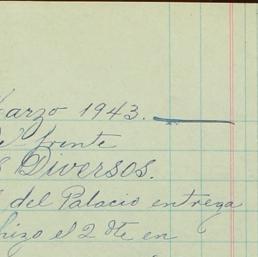 Marzo 1943.
del frente
Diversos.
del Palacio entrega
hizo el 2 dte en